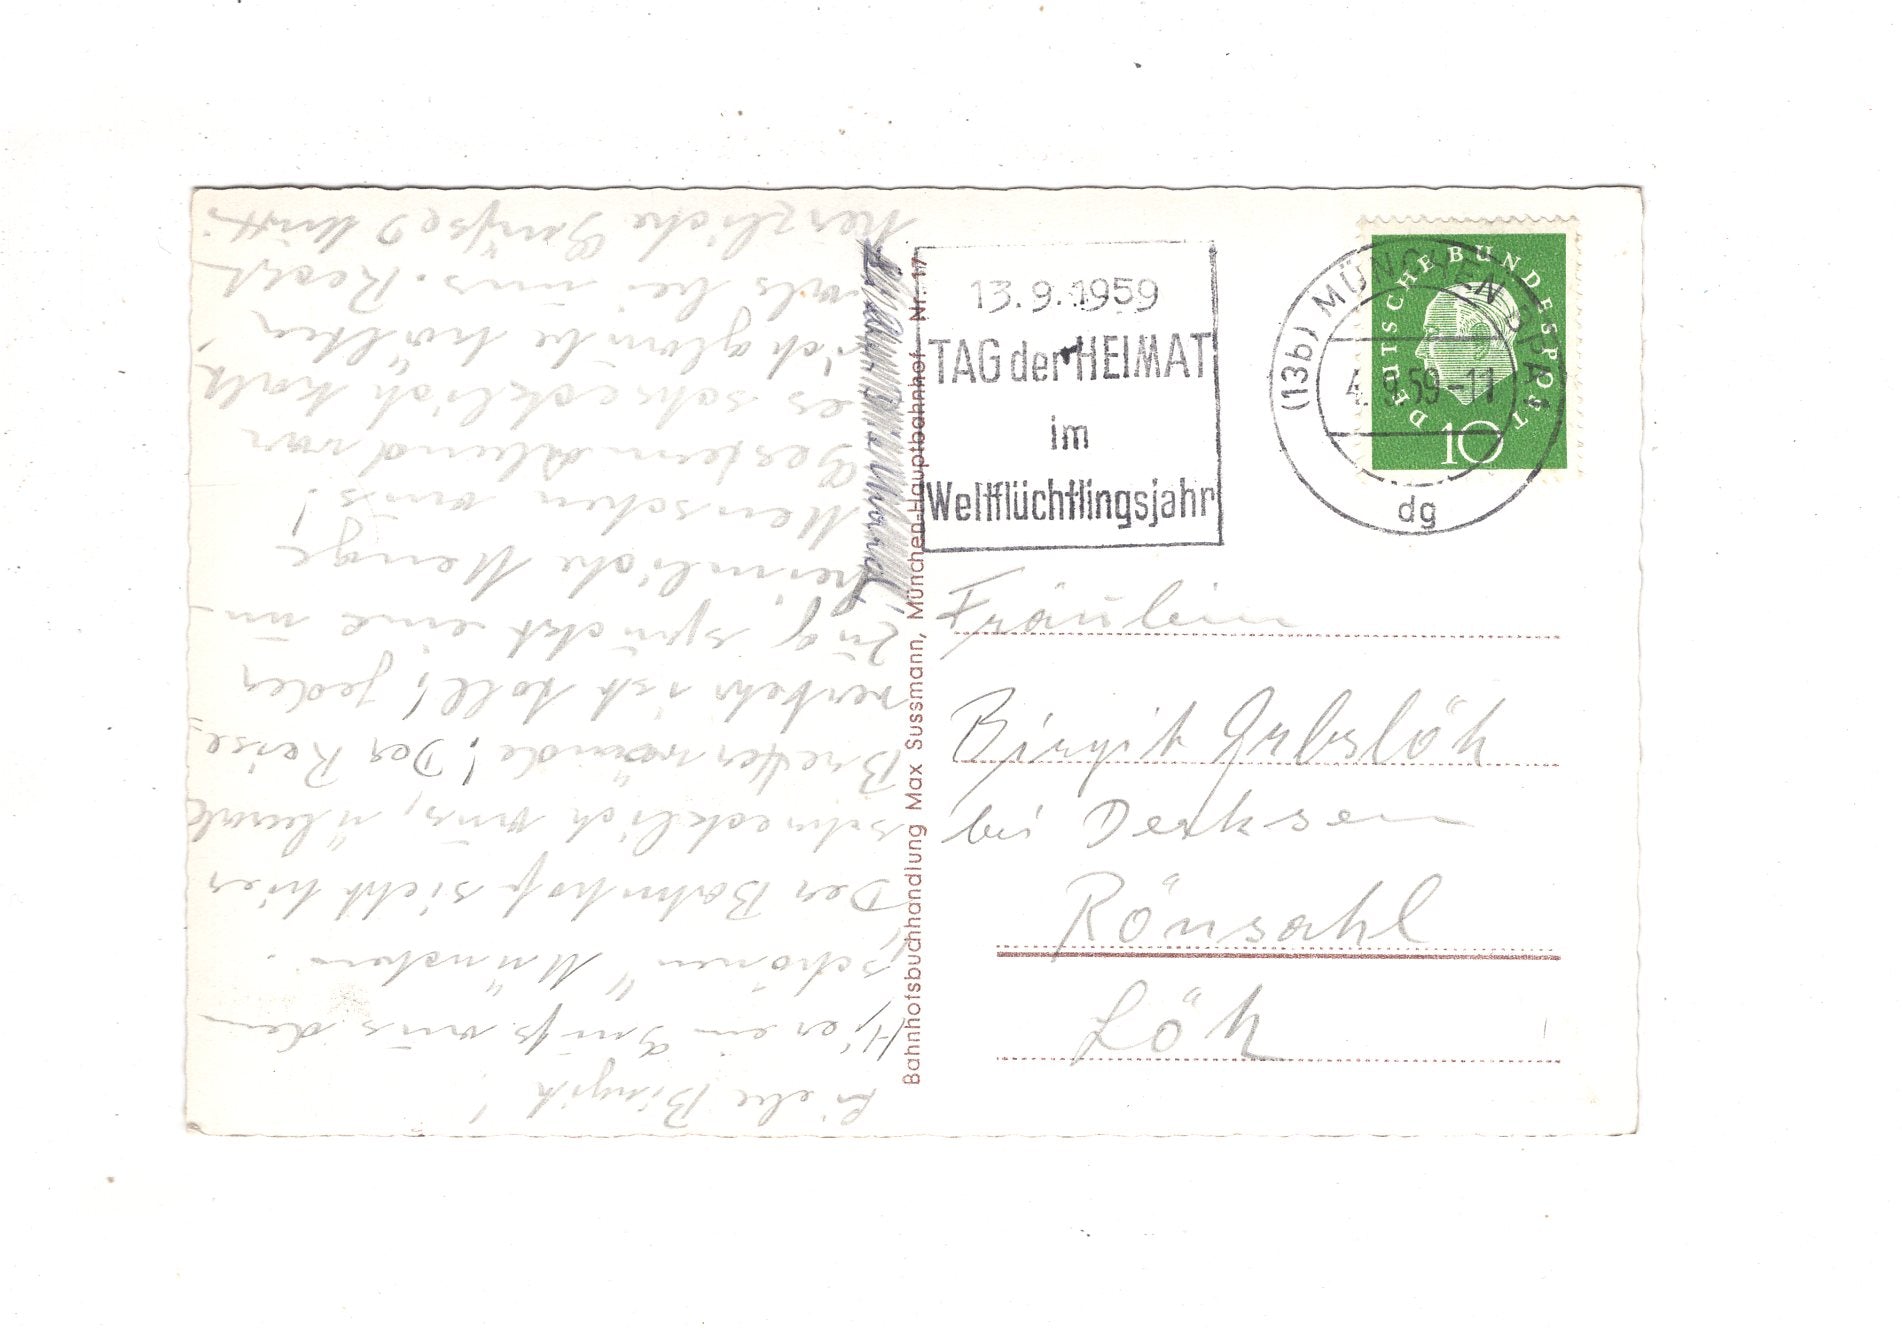 Liebe Birgit!
Hier ein Gruß aus dem
„schönen" München.
Der Bahnhof sieht hier
schrecklich aus, überall
Bretterwände! Der Reise-
verkehr ist toll! Jeder
Zug spuckt eine un-
heimliche Menge
Menschen aus!
Gestern Abend war
es schrecklich kalt,
ich glaube kälter
als bei uns. Recht
herzliche Grüße, Mutti
Bahnhofsbuchhandlung Max Sussmann, München-Hauptbahnhof Nr. 17
13.9.1959
TAG der HEIMAT
im
Weltflüchtlingsjahr
(13b) MÜNCHEN
4.9.59-11
dg
DEUTSCHE BUNDESPOST
10
Fräulein
Birgit
bei Derksen
Rönsahl
Löh